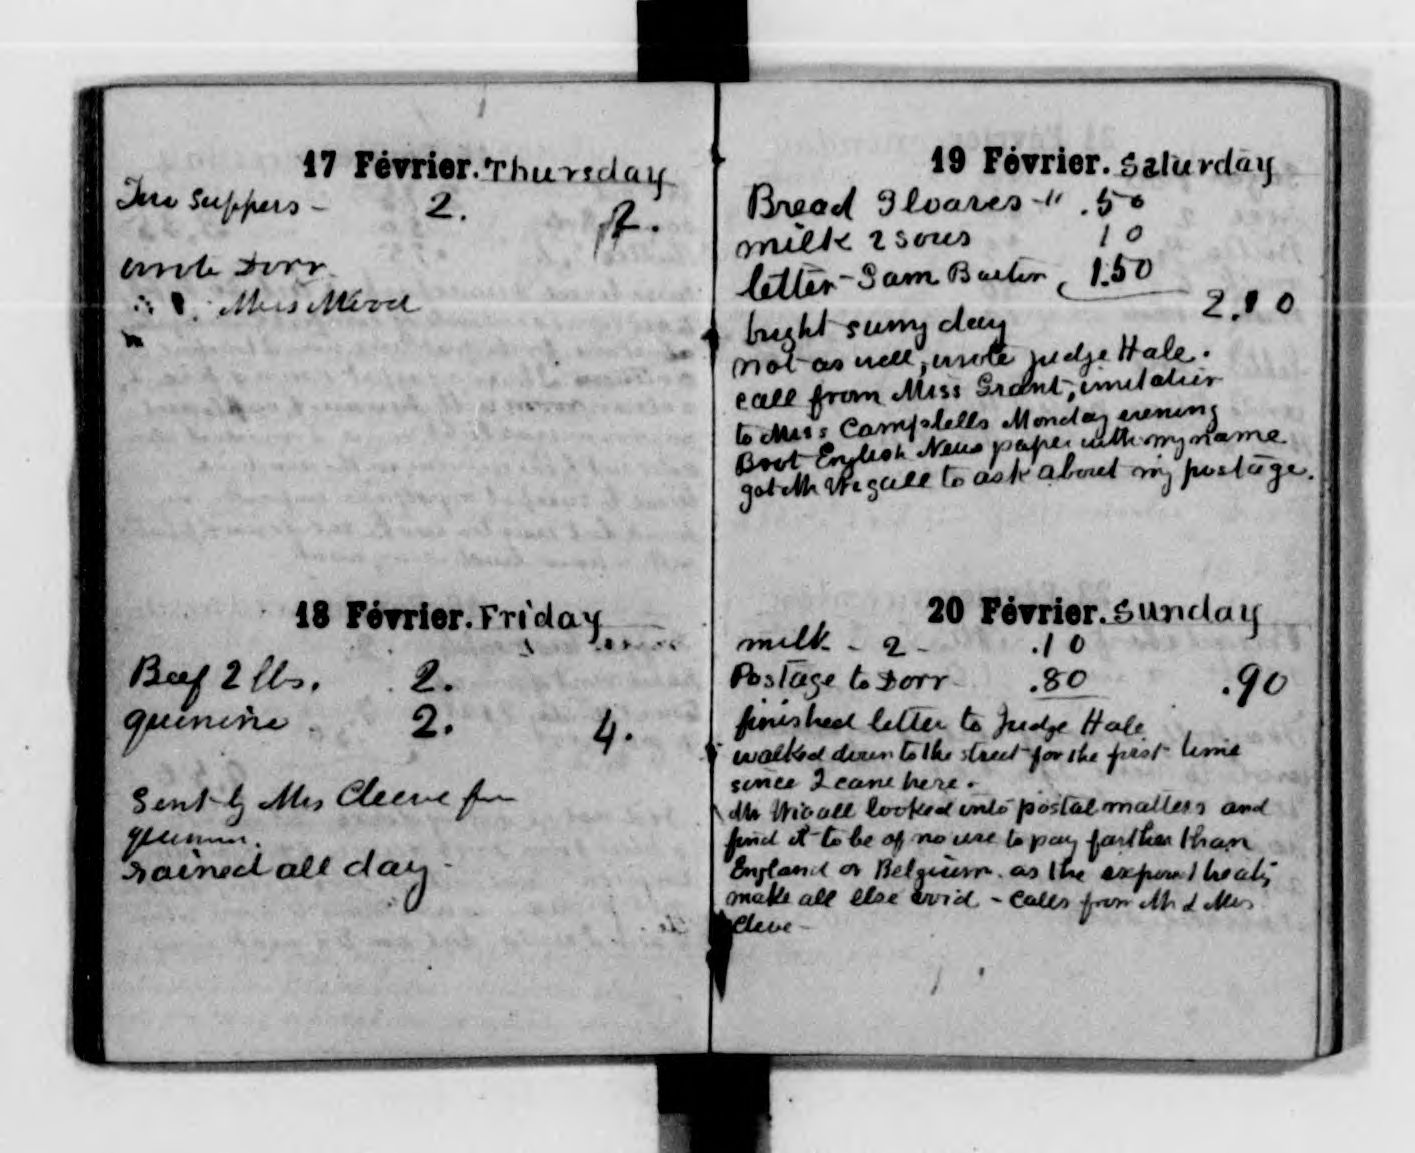 17 Février. Thursday
Two Suppers - 2. 2.
wrote Dorr
" Miss
18 Février. Friday
Beef 2 lbs. 2.
quinine 2. 4.
Sent by Mrs Cleeve for
quinine.
rained all day -
19 Février. Saturday
Bread 9 loaves - " .50
milk 2 sous 10
letter - Sam Barton 1.50
2.10
bright sunny day
not as well, wrote Judge Hale.
call from Miss Grant, invitation
to Miss Campbells Monday evening
English News paper with my name
got Mr Wigall to ask about my postage.
20 Février. Sunday
milk - 2 - .10
Postage to Dorr .80 .90
finished letter to Judge Hale
walked down to the street for the first time
since I came here.
Mr Wigall looked into postal matters and
find it to be of no use to pay farther than
England or Belgium. as the treaty
make all else void - calls from Mr & Mrs
Cleve -